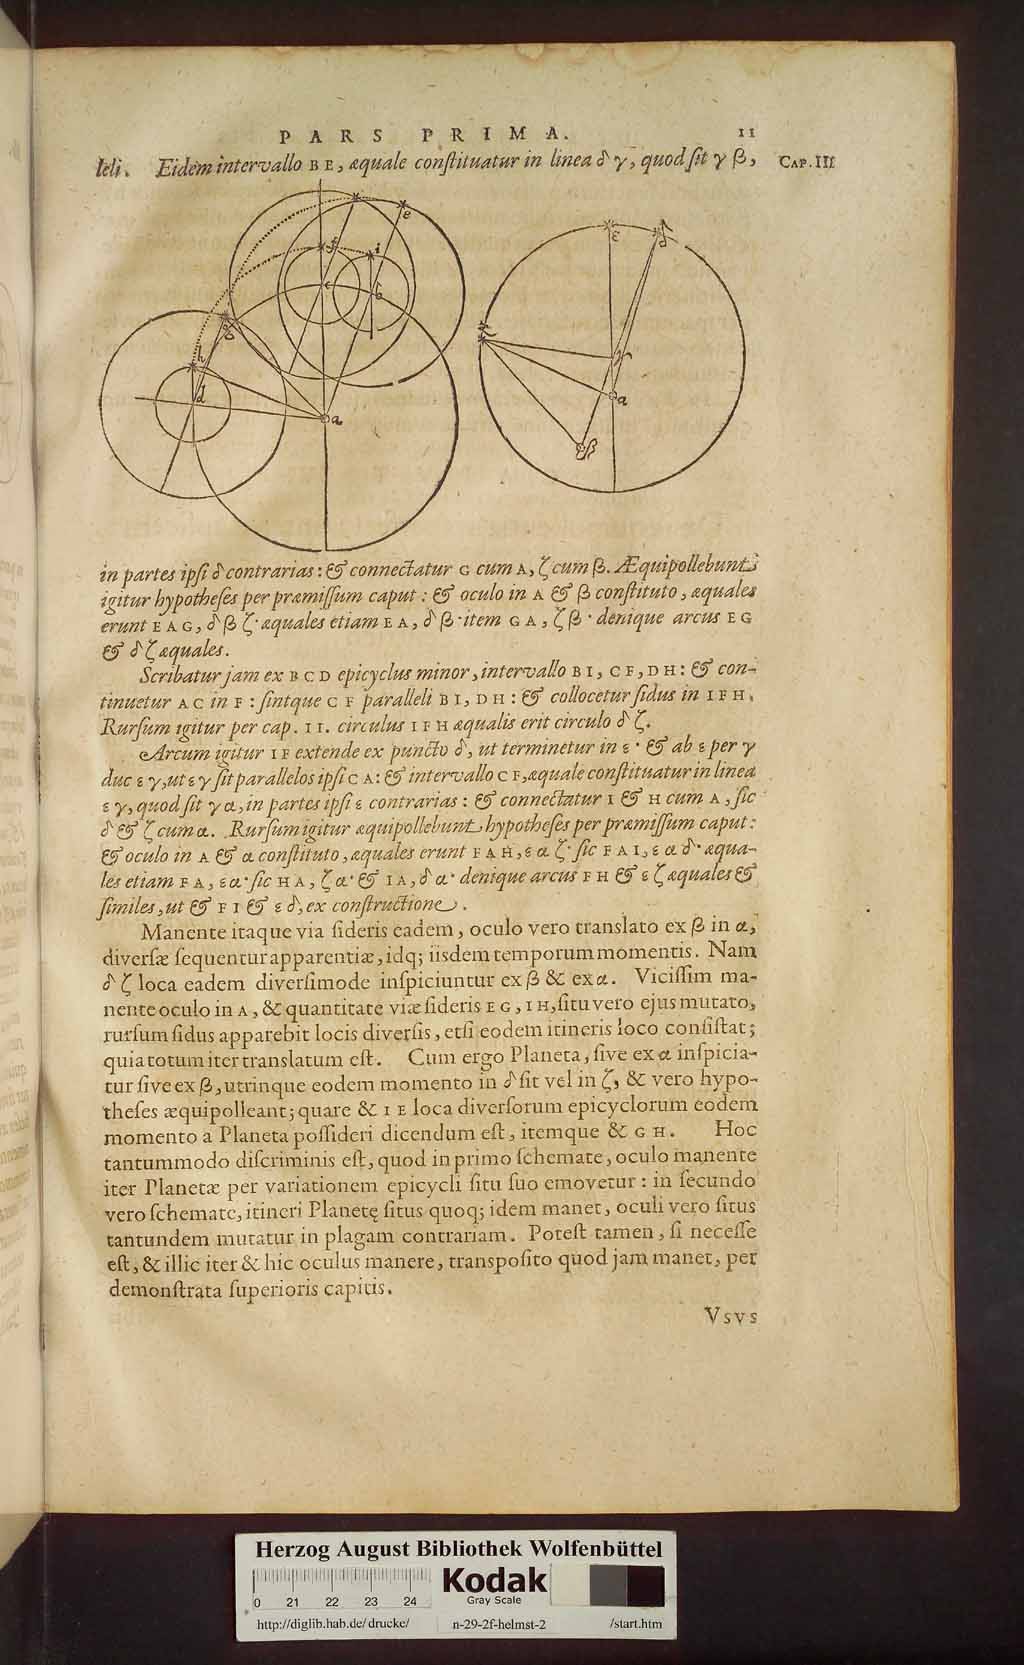 PARS PRIMA. 11
leli. Eidem intervallo BE, æquale conſtituatur in linea δγ, quod ſit γβ, CAP. III
e
f
i
c
b
g
h
d
a
ε
δ
ζ
γ
α
β
in partes ipſi δ contrarias: & connectatur G cum A, ζ cum β. Æquipollebunt
igitur hypotheſes per præmiſſum caput: & oculo in A & β conſtituto, æquales
erunt EAG, δβζ· æquales etiam EA, δβ· item GA, ζβ· denique arcus EG
& δζ æquales.
Scribatur jam ex BCD epicyclus minor, intervallo BI, CF, DH: & con-
tinuetur AC in F: ſintque CF paralleli BI, DH: & collocetur ſidus in IFH.
Rurſum igitur per cap. II. circulus IFH æqualis erit circulo δζ.
Arcum igitur IF extende ex puncto δ, ut terminetur in ε· & ab ε per γ
duc εγ, ut εγ ſit parallelos ipſi CA: & intervallo CF, æquale conſtituatur in linea
εγ, quod ſit γα, in partes ipſi ε contrarias: & connectatur I & H cum A, ſic
δ & ζ cum α. Rurſum igitur æquipollebunt hypotheſes per præmiſſum caput:
& oculo in A & α conſtituto, æquales erunt FAH, εαζ· ſic FAI, εαδ· æqua-
les etiam FA, εα· ſic HA, ζα· & IA, δα· denique arcus FH & εζ æquales &
ſimiles, ut & FI & εδ, ex conſtructione.
Manente itaque via ſideris eadem, oculo vero translato ex β in α,
diverſæ ſequentur apparentiæ, idq; iisdem temporum momentis. Nam
δζ loca eadem diverſimode inſpiciuntur ex β & ex α. Viciſſim ma-
nente oculo in A, & quantitate viæ ſideris EG, IH, ſitu vero ejus mutato,
rurſum ſidus apparebit locis diverſis, etſi eodem itineris loco conſiſtat;
quia totum iter translatum eſt. Cum ergo Planeta, ſive ex α inſpicia-
tur ſive ex β, utrinque eodem momento in δ ſit vel in ζ, & vero hypo-
theſes æquipolleant; quare & IE loca diverſorum epicyclorum eodem
momento a Planeta poſſideri dicendum eſt, itemque & GH. Hoc
tantummodo diſcriminis eſt, quod in primo ſchemate, oculo manente
iter Planetæ per variationem epicycli ſitu ſuo emovetur: in ſecundo
vero ſchemate, itineri Planetę ſitus quoq; idem manet, oculi vero ſitus
tantundem mutatur in plagam contrariam. Poteſt tamen, ſi neceſſe
eſt, & illic iter & hic oculus manere, transpoſito quod jam manet, per
demonſtrata ſuperioris capitis.
Vsvs
Herzog August Bibliothek Wolfenbüttel
0 21 22 23 24
Kodak
Gray Scale
http://diglib.hab.de/drucke/ n-29-2f-helmst-2 /start.htm